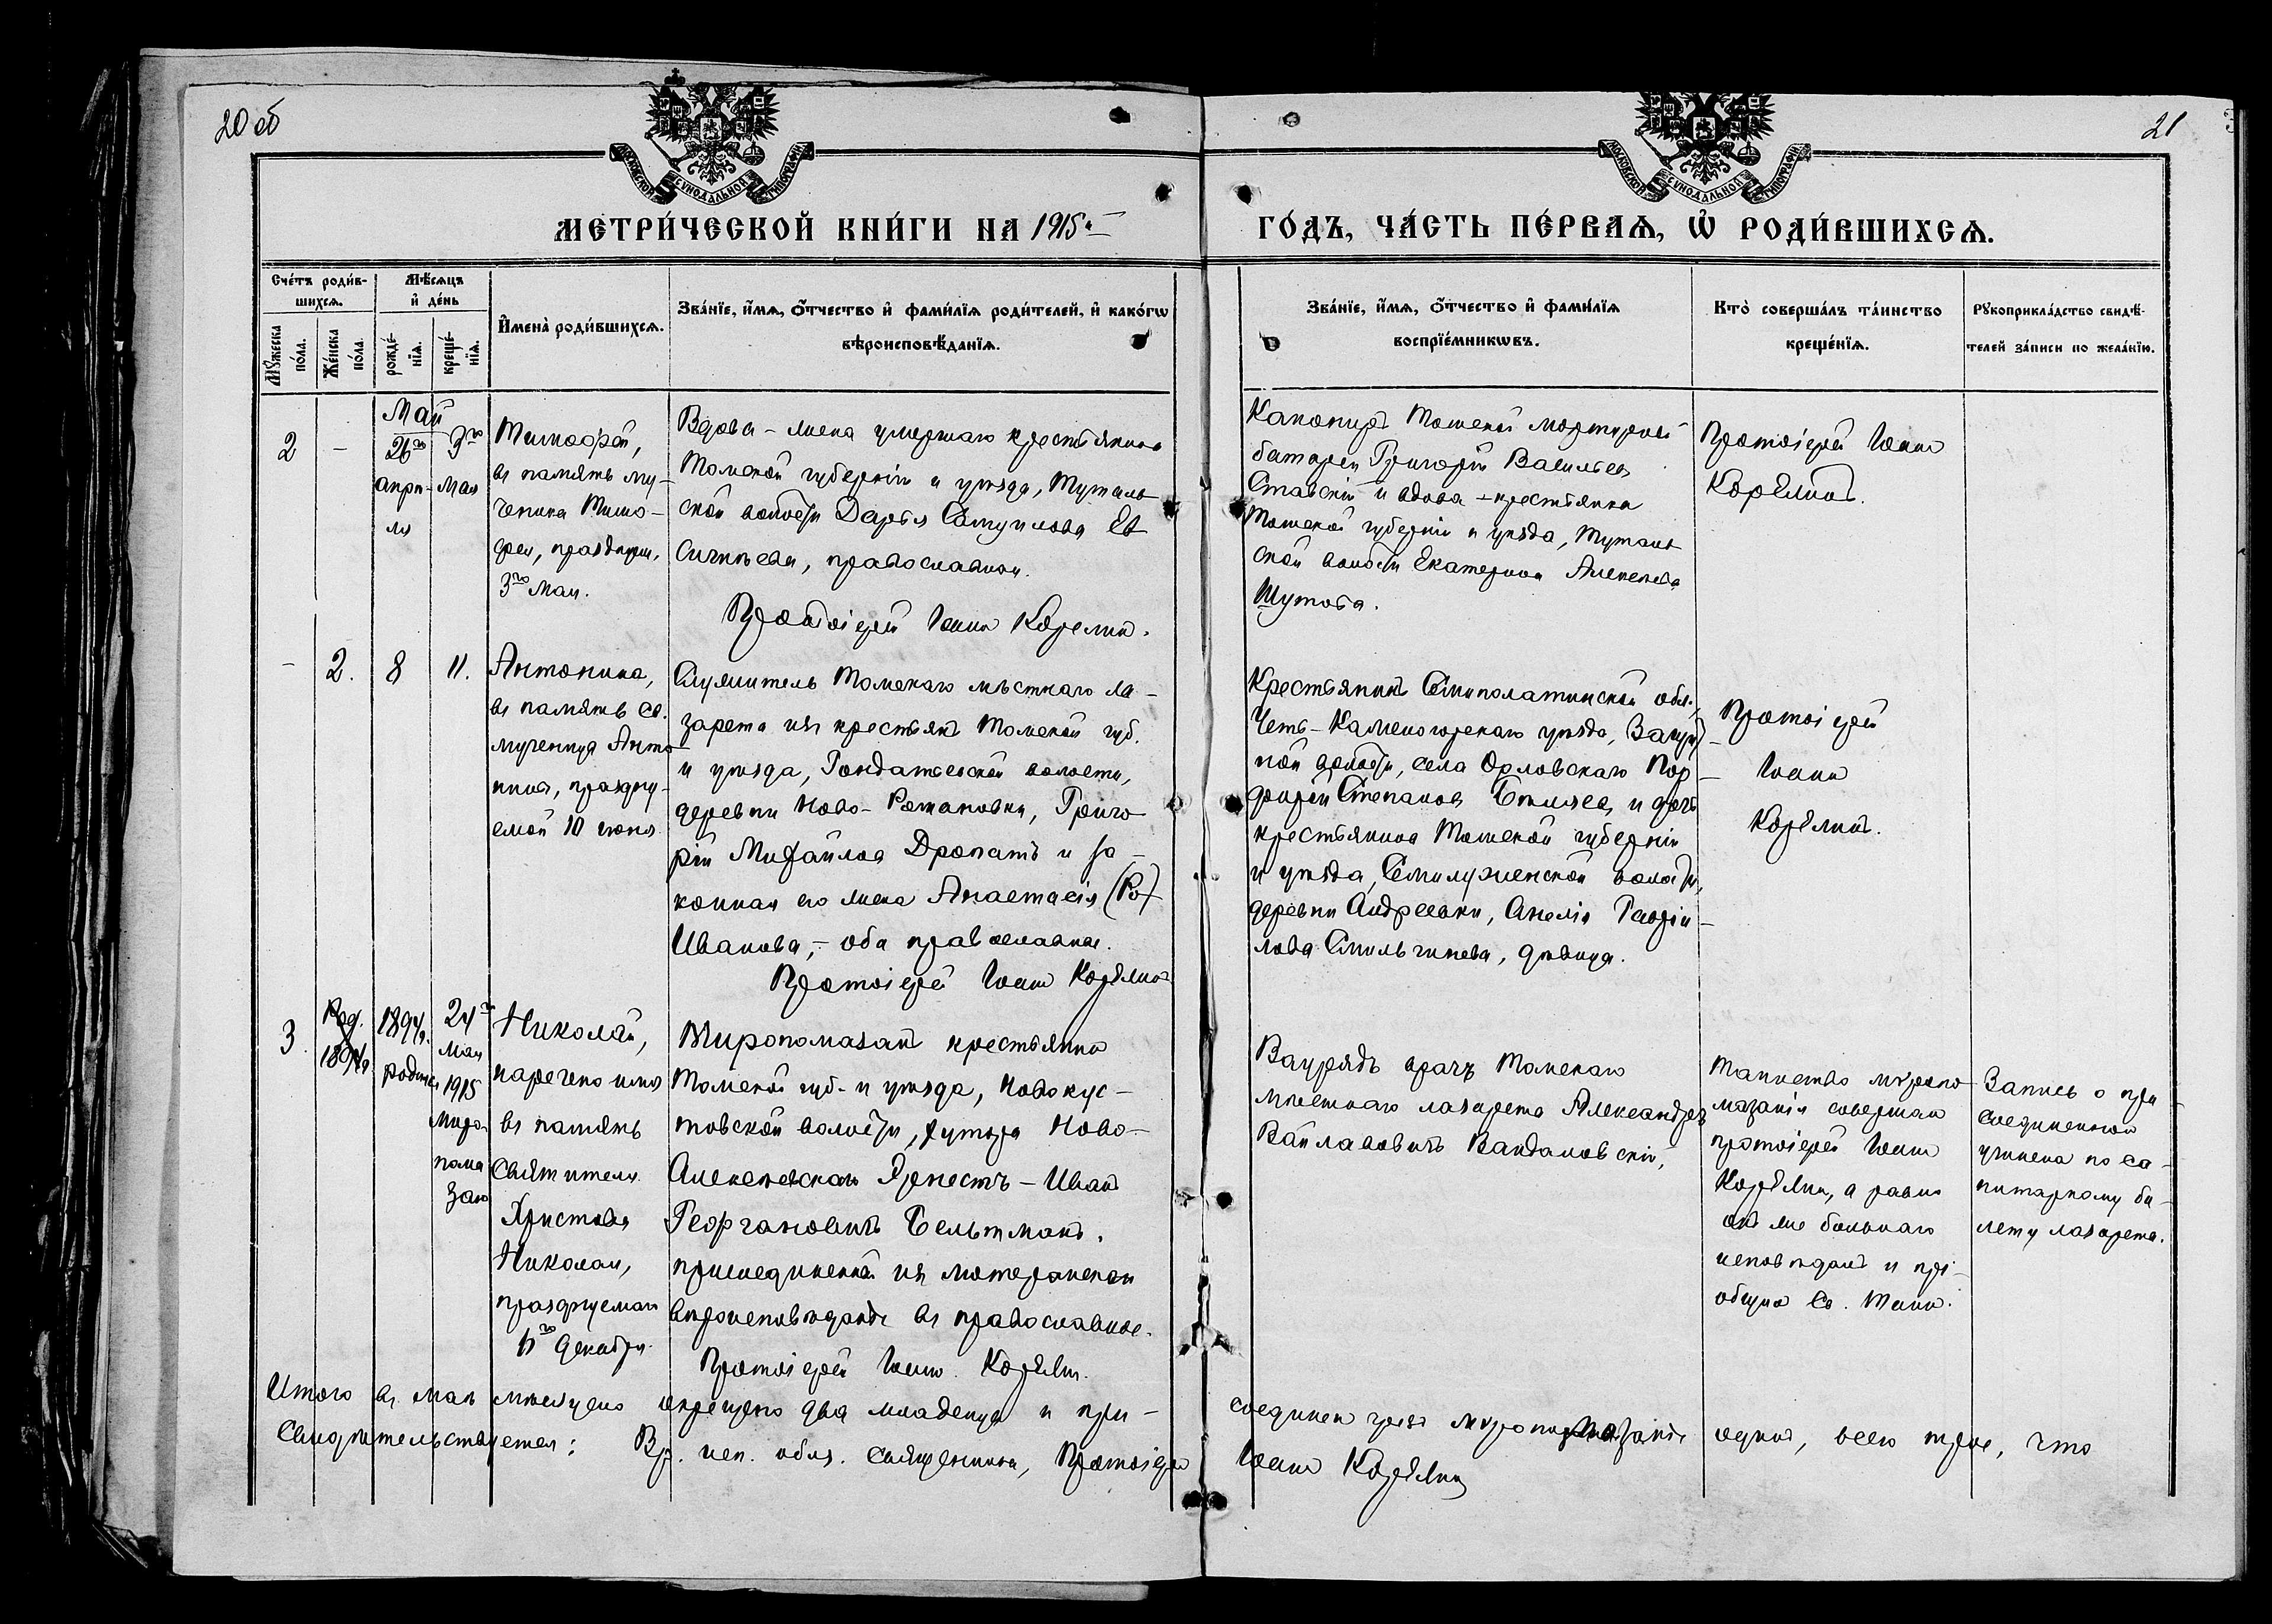 20 об
21
МОСКОВСКОЙ СУНОДАЛЬНОЙ ТИПОГРАФИИ
МОСКОВСКОЙ СУНОДАЛЬНОЙ ТИПОГРАФИИ
МЕТРИ́ЧЕСКОЙ КНИ́ГИ НА 1915й
ГО́ДЪ, ЧА́СТЬ ПЕ́РВАѦ, Ѽ РОДИ́ВШИХСѦ.
Сче́тъ роди́в-
шихсѧ.
Мꙋ́жеска
по́ла.
Же́нска
по́ла.
Мѣ́сѧцъ
и҆ де́нь
рожде́-
нїѧ.
креще́-
нїѧ.
И҆мена̀ роди́вшихсѧ.
Зва́нїе, и҆́мѧ, ѻ҆́тчество и҆ фами́лїѧ роди́телей, и҆ како́гѡ
вѣроисповѣ́данїѧ.
Зва́нїе, и҆́мѧ, ѻ҆́тчество и҆ фами́лїѧ
воспрїе́мникѡвъ.
Кто̀ соверша́лъ та́инство
креще́нїѧ.
Рꙋкоприкла́дство свидѣ́-
телей за́писи по жела́нїю.
Май
2
-
26го
апрѣ-
ля
3го
мая
Тимофей,
въ память му-
ченика Тимо-
фея, праздкуем.
3го мая.
Вдова - жена умершаго крестьянина
Томской губернiи и уѣзда, Туталь
ской волости Дарья Самуилова Ев
сигнѣева, православная.
Протоiерей Iоаннъ Корелинъ.
Канониръ Томской мортирной
батареи Григорiй Васильевъ
Ставскiй и вдова - крестьянка
Томской губернiи и уѣзда, Туталь
ской волости Екатерина Алексѣева
Шутова.
Протоiерей Iоаннъ
Корелинъ.
-
2.
8
11.
Антонина,
въ память св.
мученица Анто
нина, праздну-
емой 10 iюня
Служитель Томскаго мѣстнаго ла-
зарета изъ крестьянъ Томской губ.
и уѣзда, Гондатьевской волости,
деревни Ново-Романовки, Григо
рiй Михайловъ Дропатъ и за-
конная его жена Анастасiя (Ро)
Иванова, - оба православные.
Протоiерей Iоаннъ Корелинъ
Крестьянинъ Семиполатинской обл.,
Усть-Каменогорскаго уѣзда,
ной волости, села Орловскаго Пор-
фирiй Степановъ Бѣляевъ и дочь
крестьянина Томской губернiи
и уѣзда, Семилуженской волости,
деревни Андреевки, Анелiя Гаврiи-
лова Смильгинева, дѣвица.
Протоiерей
Iоаннъ
Корелинъ.
3.
Род.
1894г.
1894г.
родился
24го
мая
1915
миро-
пома
занъ
Николай,
наречено имя
въ память
Святителя
Христова
Николая,
празднуемаго
6го декабря.
Миропомазанъ крестьянинъ
Томской губ. и уѣзда, Новокус-
ковской волости, хутора Ново-
Алексѣевскаго Эрнестъ-Иванъ
Бельтманъ,
присоединенный изъ лютеранскаго
вѣроисповѣданiя въ православное.
Протоiерей Iоаннъ Корелинъ.
Заурядъ врачъ Томскаго
мѣстнаго лазарета Александръ
Вандаловскiй,
Таинство мѵропо-
мазанiя совершалъ
протоiерей Iоаннъ
Корелинъ, а равно
онъ же больнаго
исповѣдалъ и прi-
общилъ Св. Таинъ.
Запись о при-
соединенiи
учинена по са-
нитарному би-
лету лазарета.
Итого въ маѣ мѣсяцѣ крещено два младенца и при-
соединенъ чрезъ мѵропомазанiе одинъ, всего трое, что
Свидѣтельствуется: Вр. исп. обяз. священника, Протоiерей
Iоаннъ Корелинъ